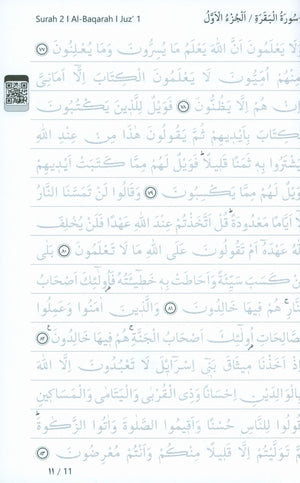 Surah 2 I Al-Baqarah I Juz' 1
سُورَةُ الْبَقَرَةِ / اَلْجُزْءُ الْاَوَّلُ
وَلَا يَعْلَمُونَ اَنَّ اللّٰهَ يَعْلَمُ مَا يُسِرُّونَ وَمَا يُعْلِنُونَ ٧٧
مِنْهُمْ اُمِّيُّونَ لَا يَعْلَمُونَ الْكِتَابَ اِلَّٓا اَمَانِيَّ
اِنْ هُمْ اِلَّا يَظُنُّونَ ٧٨ فَوَيْلٌ لِلَّذ۪ينَ يَكْتُبُونَ
الْكِتَابَ بِاَيْد۪يهِمْ ثُمَّ يَقُولُونَ هٰذَا مِنْ عِنْدِ اللّٰهِ
لِيَشْتَرُوا بِه۪ ثَمَنًا قَل۪يلًاۜ فَوَيْلٌ لَهُمْ مِمَّا كَتَبَتْ اَيْد۪يهِمْ
وَوَيْلٌ لَهُمْ مِمَّا يَكْسِبُونَ ٧٩ وَقَالُوا لَنْ تَمَسَّنَا النَّارُ
اَيَّامًا مَعْدُودَةًۜ قُلْ اَتَّخَذْتُمْ عِنْدَ اللّٰهِ عَهْدًا فَلَنْ يُخْلِفَ
اللّٰهُ عَهْدَهُٓ اَمْ تَقُولُونَ عَلَى اللّٰهِ مَا لَا تَعْلَمُونَ ٨٠ بَلٰى
مَنْ كَسَبَ سَيِّئَةً وَاَحَاطَتْ بِه۪ خَط۪ٓيـَٔتُهُ فَاُو۬لٰٓئِكَ اَصْحَابُ
النَّارِۚ هُمْ ف۪يهَا خَالِدُونَ ٨١ وَالَّذ۪ينَ اٰمَنُوا وَعَمِلُوا
الصَّالِحَاتِ اُو۬لٰٓئِكَ اَصْحَابُ الْجَنَّةِۚ هُمْ ف۪يهَا خَالِدُونَ ٨٢
اِذْ اَخَذْنَا م۪يثَاقَ بَن۪ٓي اِسْرَٓائ۪لَ لَا تَعْبُدُونَ اِلَّا اللّٰهَ
وَبِالْوَالِدَيْنِ اِحْسَانًا وَذِي الْقُرْبٰى وَالْيَتَامٰى وَالْمَسَاك۪ينِ
وَقُولُوا لِلنَّاسِ حُسْنًا وَاَق۪يمُوا الصَّلٰوةَ وَاٰتُوا الزَّكٰوةَۜ
ثُمَّ تَوَلَّيْتُمْ اِلَّا قَل۪يلًا مِنْكُمْ وَاَنْتُمْ مُعْرِضُونَ ٨٣
11 / 11